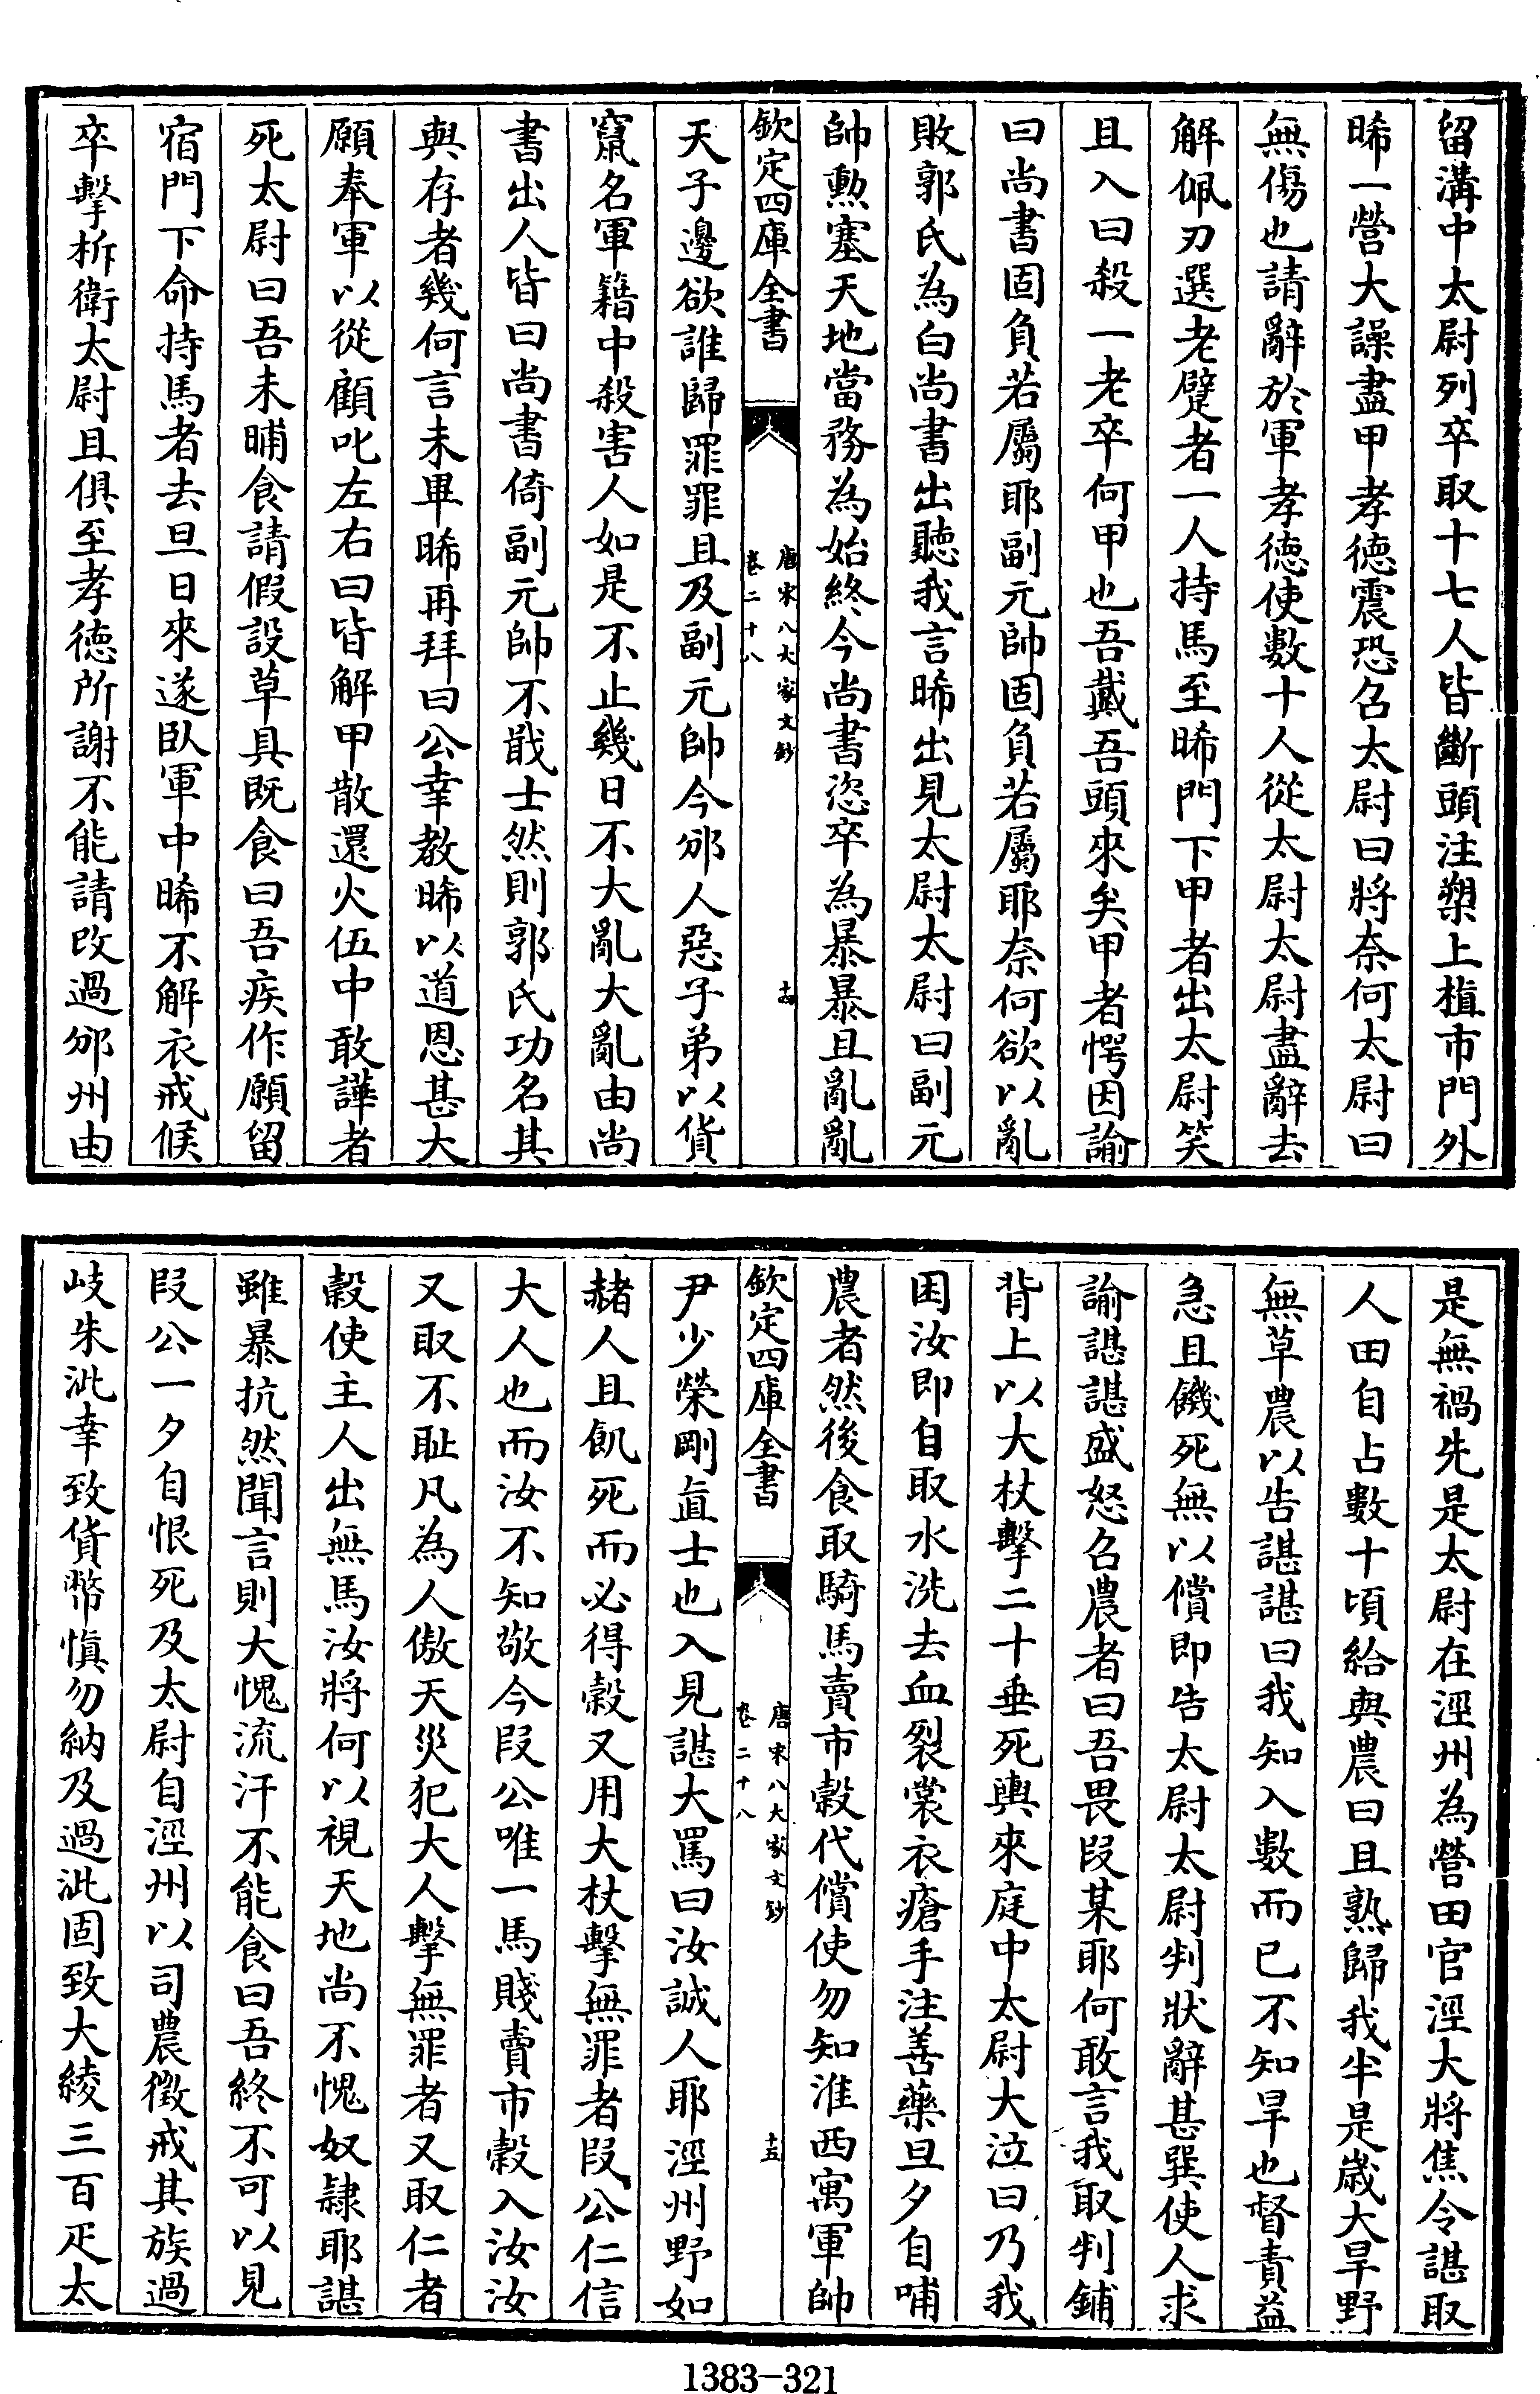 留溝中太尉列卒取十七人皆斷頭注槊上植市門外
晞一營大譟盡甲孝德震恐召太尉曰將奈何太尉曰
無傷也請辭於軍孝德使數十人從太尉太尉盡辭去
解佩刃選老躄者一人持馬至晞門下甲者出太尉笑
且入曰殺一老卒何甲也吾戴吾頭來矣甲者愕因諭
曰尚書固負若屬耶副元帥固負若屬耶奈何欲以亂
敗郭氏為白尚書出聽我言晞出見太尉太尉曰副元
帥勲塞天地當務為始終今尚書恣卒為暴暴且亂亂
欽定四庫全書
唐宋八大家文鈔
卷二十八
十四
天子邊欲誰歸罪罪且及副元帥今邠人惡子弟以貨
竄名軍籍中殺害人如是不止幾日不大亂大亂由尚
書出人皆曰尚書倚副元帥不戢士然則郭氏功名其
與存者幾何言未畢晞再拜曰公幸教晞以道恩甚大
願奉軍以從顧叱左右曰皆解甲散還火伍中敢譁者
死太尉曰吾未晡食請假設草具既食曰吾疾作願留
宿門下命持馬者去旦日來遂臥軍中晞不解衣戒候
卒擊柝衛太尉旦俱至孝德所謝不能請改過邠州由
是無禍先是太尉在涇州為營田官涇大將焦令諶取
人田自占數十頃給與農曰且熟歸我半是嵗大旱野
無草農以告諶諶曰我知入數而已不知旱也督責益
急且饑死無以償即告太尉太尉判狀辭甚巽使人求
諭諶諶盛怒召農者曰吾畏段某耶何敢言我取判鋪
背上以大杖擊二十垂死輿來庭中太尉大泣曰乃我
困汝即自取水洗去血裂裳衣瘡手注善藥旦夕自哺
農者然後食取騎馬賣市穀代償使勿知淮西寓軍帥
欽定四庫全書
唐宋八大家文鈔
卷二十八
十五
尹少榮剛直士也入見諶大罵曰汝誠人耶涇州野如
赭人且飢死而必得穀又用大杖擊無罪者段公仁信
大人也而汝不知敬今段公唯一馬賤賣市穀入汝汝
又取不恥凡為人傲天災犯大人擊無罪者又取仁者
穀使主人出無馬汝將何以視天地尚不愧奴隸耶諶
雖暴抗然聞言則大愧流汗不能食曰吾終不可以見
段公一夕自恨死及太尉自涇州以司農徵戒其族過
岐朱泚幸致貨幣慎勿納及過泚固致大綾三百疋太
1383-321